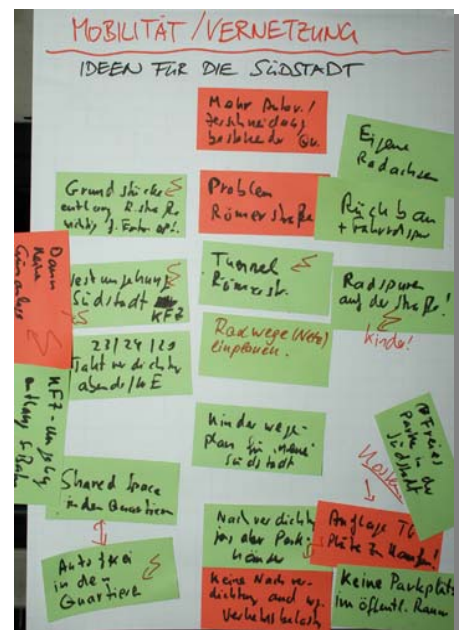 MOBILITÄT/VERNETZUNG
IDEEN FÜR DIE SÜDSTADT
Mehr
Zerschneidung
bestehender Qu.
Eigene
Radachsen
Grundstücke
entlang R.straße
wichtig f.
Problem
Römerstraße
Rückbau
+ Fahrradspur
Dann
keine
Grünanlage
Westumfahrung
Südstadt
KFZ
Tunnel
Römerstr.
Radspuren
auf der Straße!
Kinder!
23/24/29
Taktverdichtg
abends/WE
Radwege (Netz)
einplanen.
KFZ-Umgehg
entlang S-Bahn
Kinderwege-
plan für "neue"
Südstadt
Freies
Parken in der
Südstadt
Kosten
Shared Space
in den Quartieren
Nachverdichtg
für aber Park-
häuser
Auflage TG
Plätze zu kaufen!
Autofrei
in den
Quartieren
Keine Nachver-
dichtung auch wg.
Verkehrsbelastg
Keine Parkplätze
im öffentl. Raum